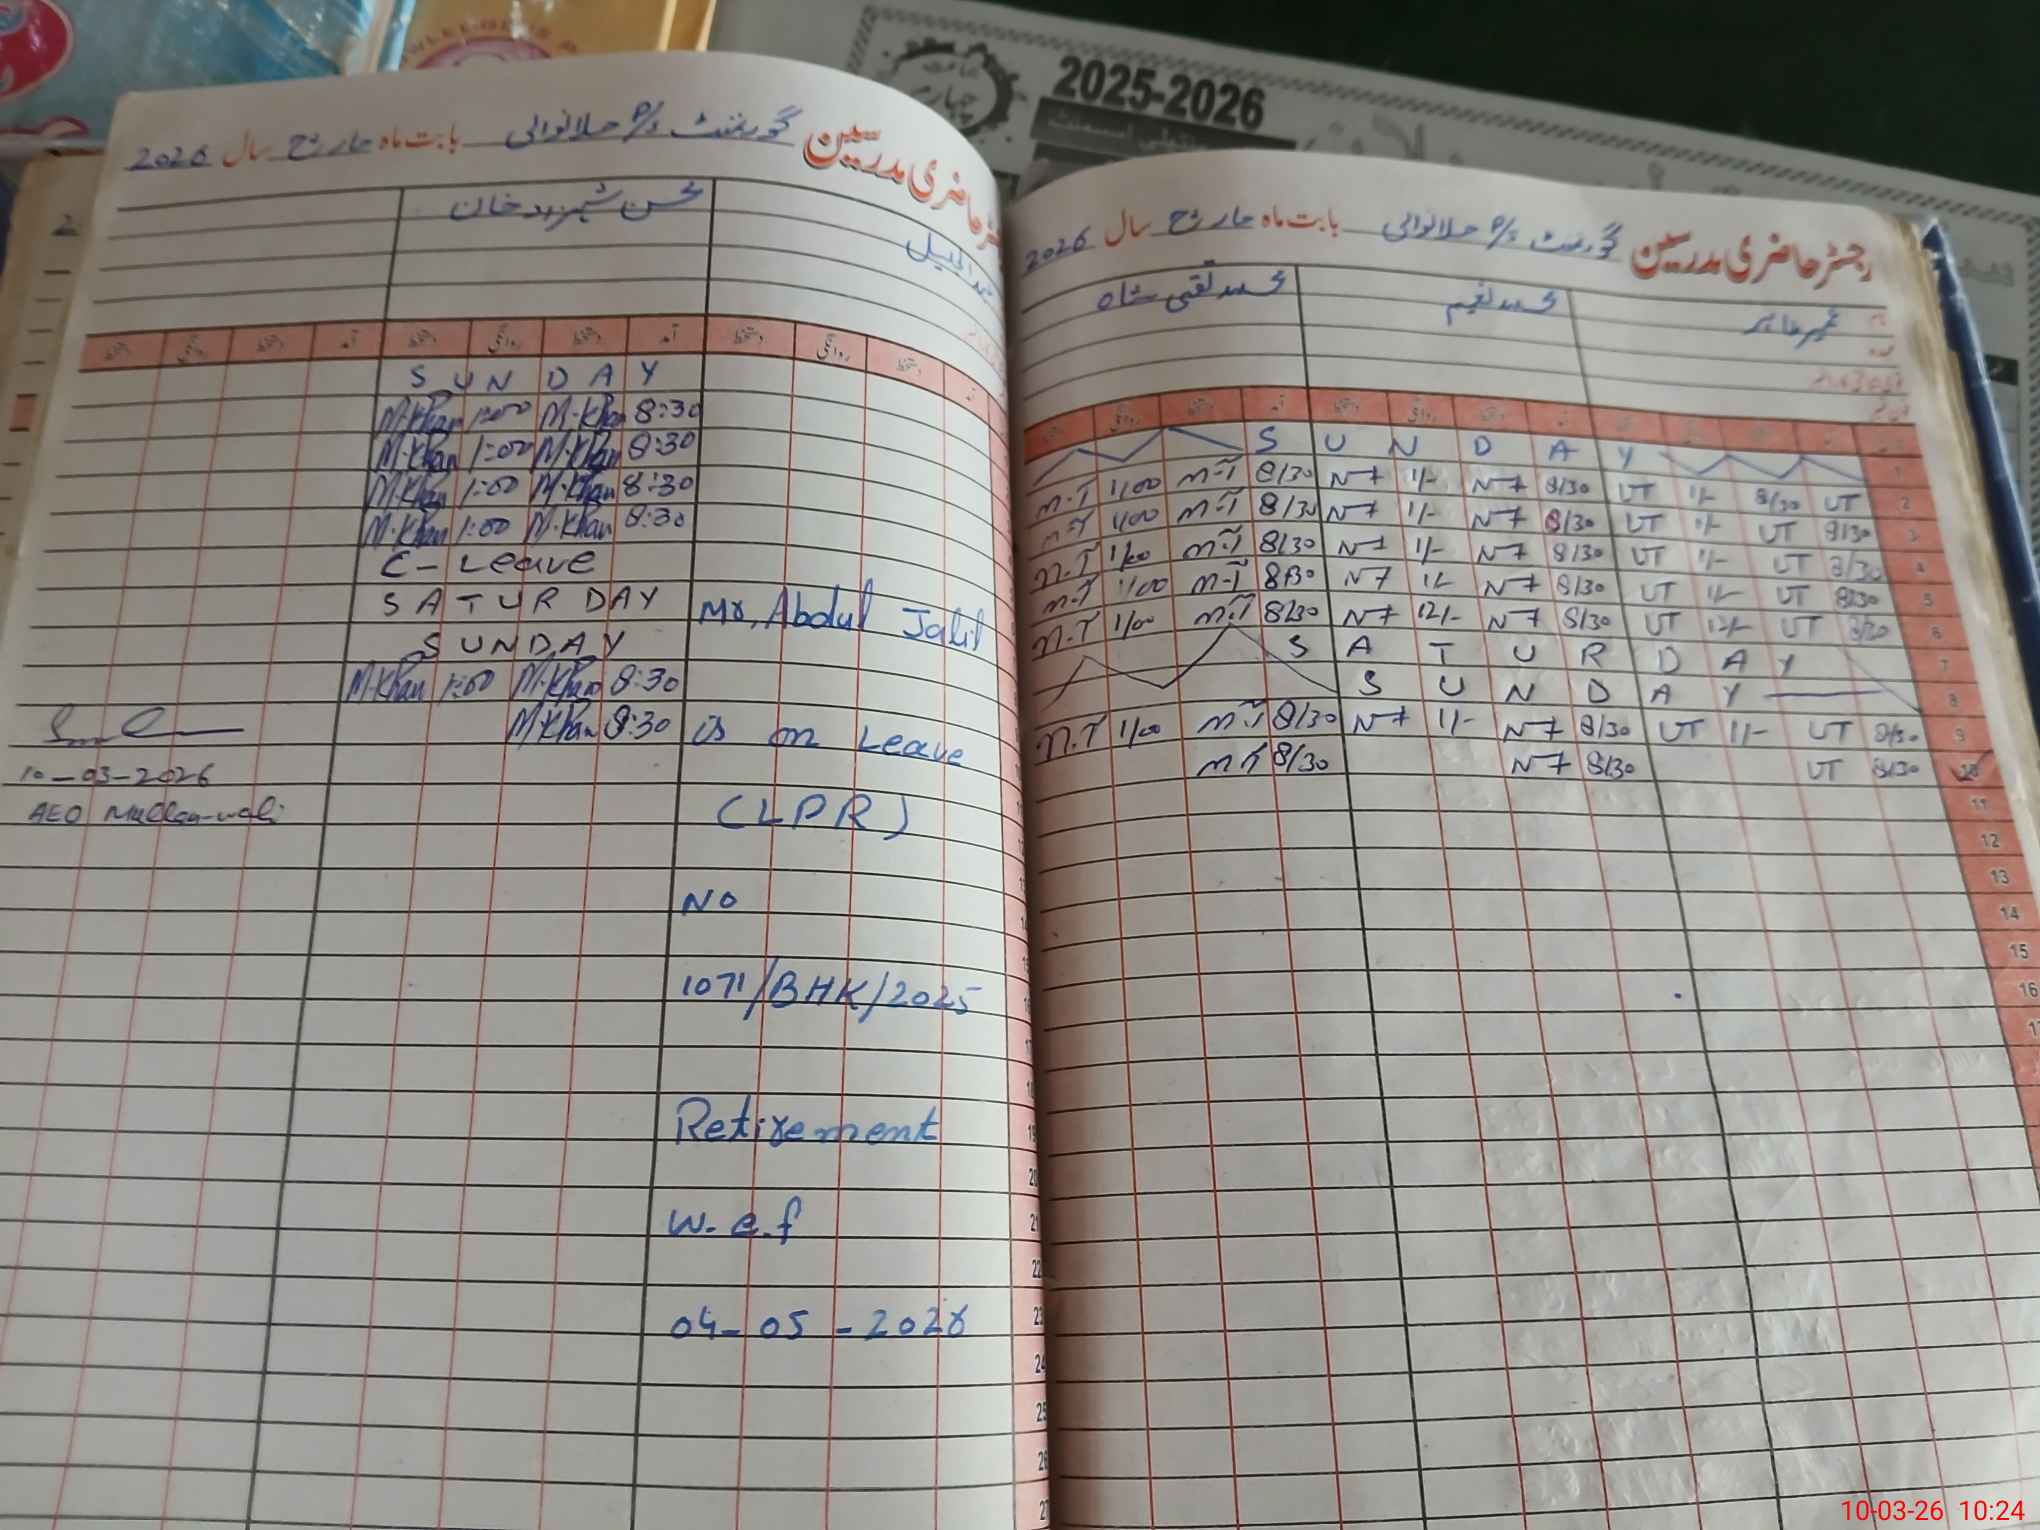 2025-2026
رجسٹر حاضری مدرسین گورنمنٹ P/S حلانوالی بابت ماہ مارچ سال 2026
محمد نعیم محمد تقی شاہ
S U N D A Y
1
M.T 1/00 M.T 8/30 N7 1/- N7 8/30 UT 1/- 8/30 UT 2
M.T 1/00 M.T 8/30 N7 1/- N7 8/30 UT 1/- UT 8/30 3
M.T 1/00 M.T 8/30 N7 1/- N7 8/30 UT 1/- UT 8/30 4
M.T 1/00 M.T 8/30 N7 1/- N7 8/30 UT 1/- UT 8/30 5
M.T 1/00 M.T 8/30 N7 12/- N7 8/30 UT 12/- UT 8/30 6
S A T U R D A Y 7
S U N D A Y 8
M.T 1/00 M.T 8/30 N7 1/- N7 8/30 UT 1/- UT 8/30 9
M.T 8/30 N7 8/30 UT 8/30 10
11
12
13
14
15
16
رجسٹر حاضری مدرسین گورنمنٹ P/S حلانوالی بابت ماہ مارچ سال 2026
عبدالجلیل محسن شہزاد خان
آمد دستخط روانگی دستخط
S U N D A Y
M.Khan 1:00 M.Khan 8:30
M.Khan 1:00 M.Khan 8:30
M.Khan 1:00 M.Khan 8:30
M.Khan 1:00 M.Khan 8:30
C- Leave
S A T U R D A Y
S U N D A Y
M.Khan 1:00 M.Khan 8:30
M.Khan 8:30
Mr, Abdul Jalil
is on Leave
(LPR)
NO
1071/BHK/2025
Retirement
w.e.f
04-05-2026
10-03-2026
AEO Mullan-wali
19
20
21
22
23
24
25
26
27
10-03-26 10:24